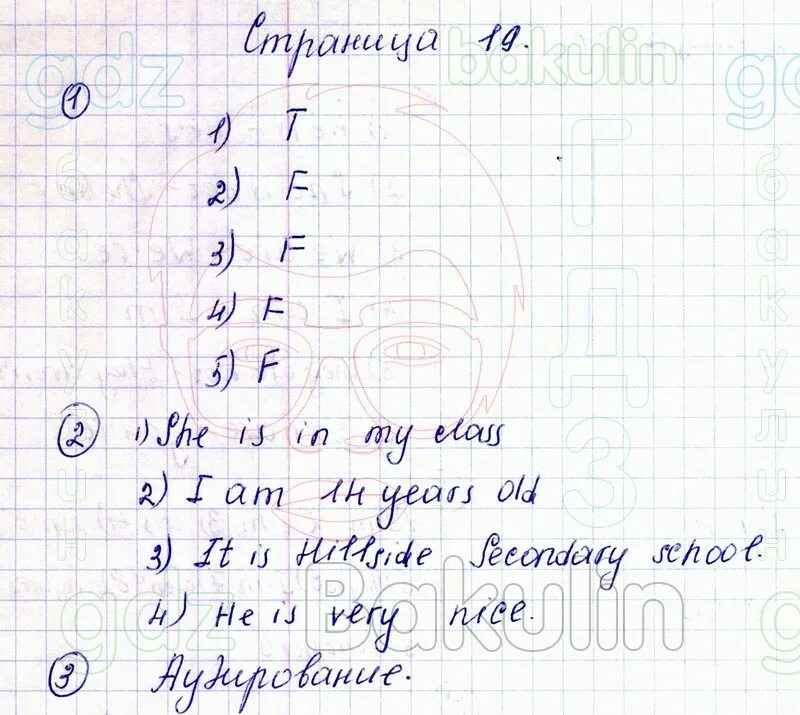 Страница 19.
1
1) T
2) F
3) F
4) F
5) F
2 1) She is in my class
2) I am 14 years old
3) It is Hillside Secondary school.
4) He is very nice.
3 Аудирование.
gdz
bakulin
gdz
ГДЗ
бакулин
бакулин
gdz
Bakulin
g